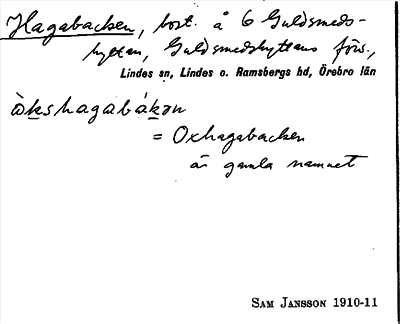 Hagabacken, bost. å 6 Guldsmeds-
hyttan, Guldsmedshyttans förs.,
Lindes sn, Lindes o. Ramsbergs hd, Örebro län
òkshagabákən
= Oxhagabacken
är gamla namnet
SAM JANSSON 1910-11